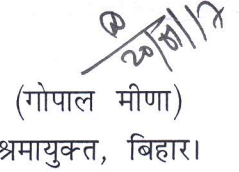 20/07/17
(गोपाल मीणा)
श्रमायुक्त, बिहार।